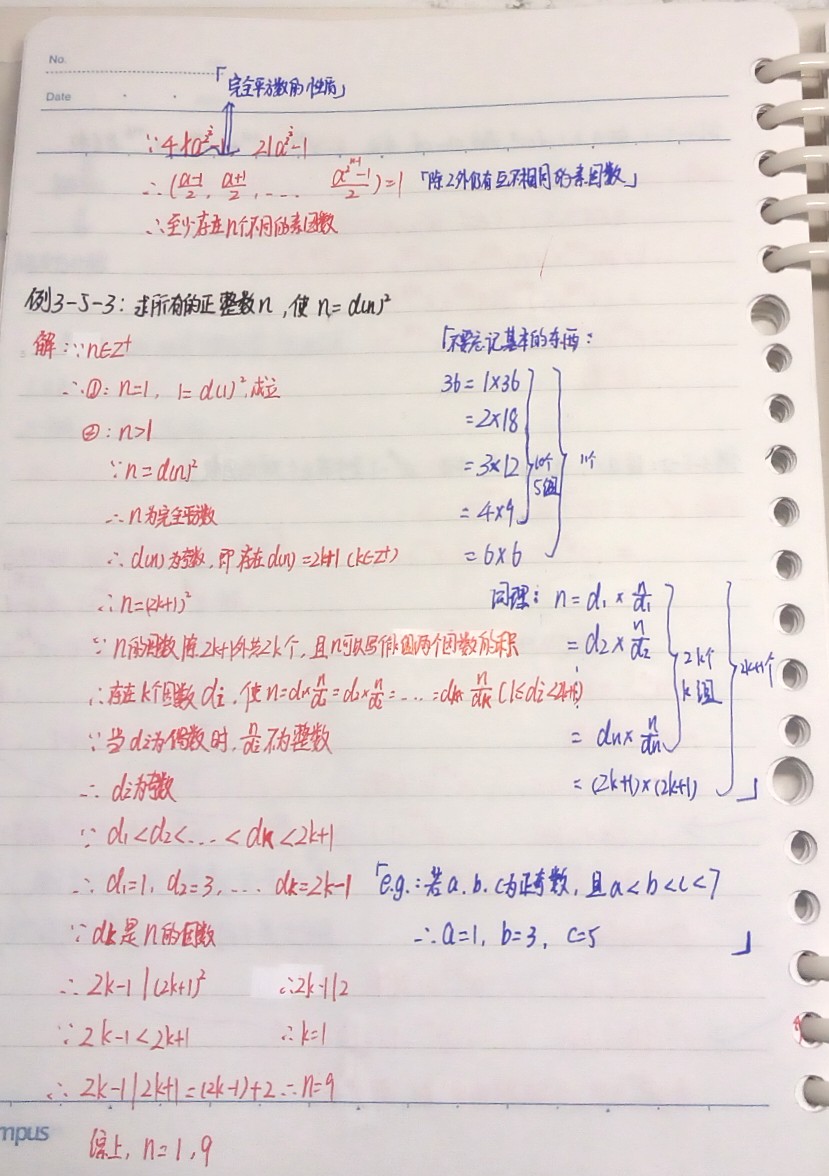 No.
Date
「完全平方数的性质」
∵4∤a^{2^i}+1 2|a^{2^i}-1
∴(\frac{a-1}{2}, \frac{a+1}{2}, …… \frac{a^{2^{n-1}}-1}{2})=1 「除2外仍有互不相同的素因数」
∴至少存在n个不同的素因数
例3-5-3：求所有的正整数n，使 n=d(n)²
解：∵n∈Z⁺
∴①：n=1，1=d(1)²，成立
②：n>1
∵n=d(n)²
∴n为完全平方数
∴d(n)为奇数，即存在d(n)=2k+1（k∈Z⁺）
∴n=(2k+1)²
∵n的因数除2k+1外共2k个，且n可以写作k组两个因数的积
∴存在k个因数di，使n=d₁×\frac{n}{d₁}=d₂×\frac{n}{d₂}=……=dk×\frac{n}{dk}（1≤di<2k+1）
∵当di为偶数时，\frac{n}{di}不为整数
∴di为奇数
∵d₁<d₂<……<dk<2k+1
∴d₁=1，d₂=3，…… dk=2k-1
∵dk是n的因数
∴2k-1|(2k+1)²
∵2k-1<2k+1
∴2k-1|2k+1=(2k-1)+2
∴2k-1|2
∴k=1
∴n=9
综上，n=1，9
「不要忘记基本的东西：
36=1×36
=2×18
=3×12
=4×9
=6×6
10个
5组
11个
同理：n=d₁×\frac{n}{d₁}
=d₂×\frac{n}{d₂}
⋮
=dn×\frac{n}{dn}
=(2k+1)×(2k+1)
2k个
k组
2k+1个
」
「e.g.：若a，b，c为正奇数，且a<b<c<7
∴a=1，b=3，c=5 」
mpus